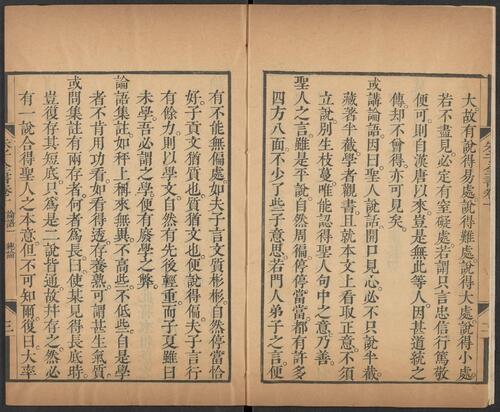 大故有說得易處說得難處說得大處說得小處
若不盡見必定有窒礙處若謂只言忠信行篤敬
便可則自漢唐以來豈是無此等人因甚道統之
傳却不曾得亦可見矣
或講論語因曰聖人說話開口見心必不只說半截
藏著半截學者觀書且就本文上看取正意不須
立說別生枝蔓唯能認得聖人句中之意乃善
聖人之言雖是平說自然周徧停停當當都有許多
四方八面不少了些子意思若門人弟子之言便
有不能無偏處如夫子言文質彬彬自然停當恰
好子貢文猶質也質猶文也便說得偏夫子言行
有餘力則以學文自然有先後輕重而子夏雖曰
未學吾必謂之學便有廢學之弊
論語集註如秤上稱來無異不高些不低些自是學
者不肯用功看如看得透存養熟可謂甚生氣質
或問集註有兩存者何者爲長曰使某見得長底時
豈復存其短底只爲是二說皆通故并存之然必
有一說合得聖人之本意但不可知爾復曰大率
論語一 總論
三